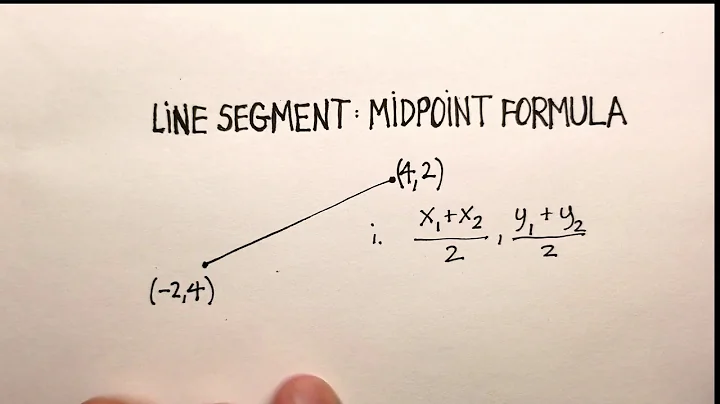 LINE SEGMENT: MIDPOINT FORMULA
(4,2)
i. x₁+x₂/2, y₁+y₂/2
(-2,4)